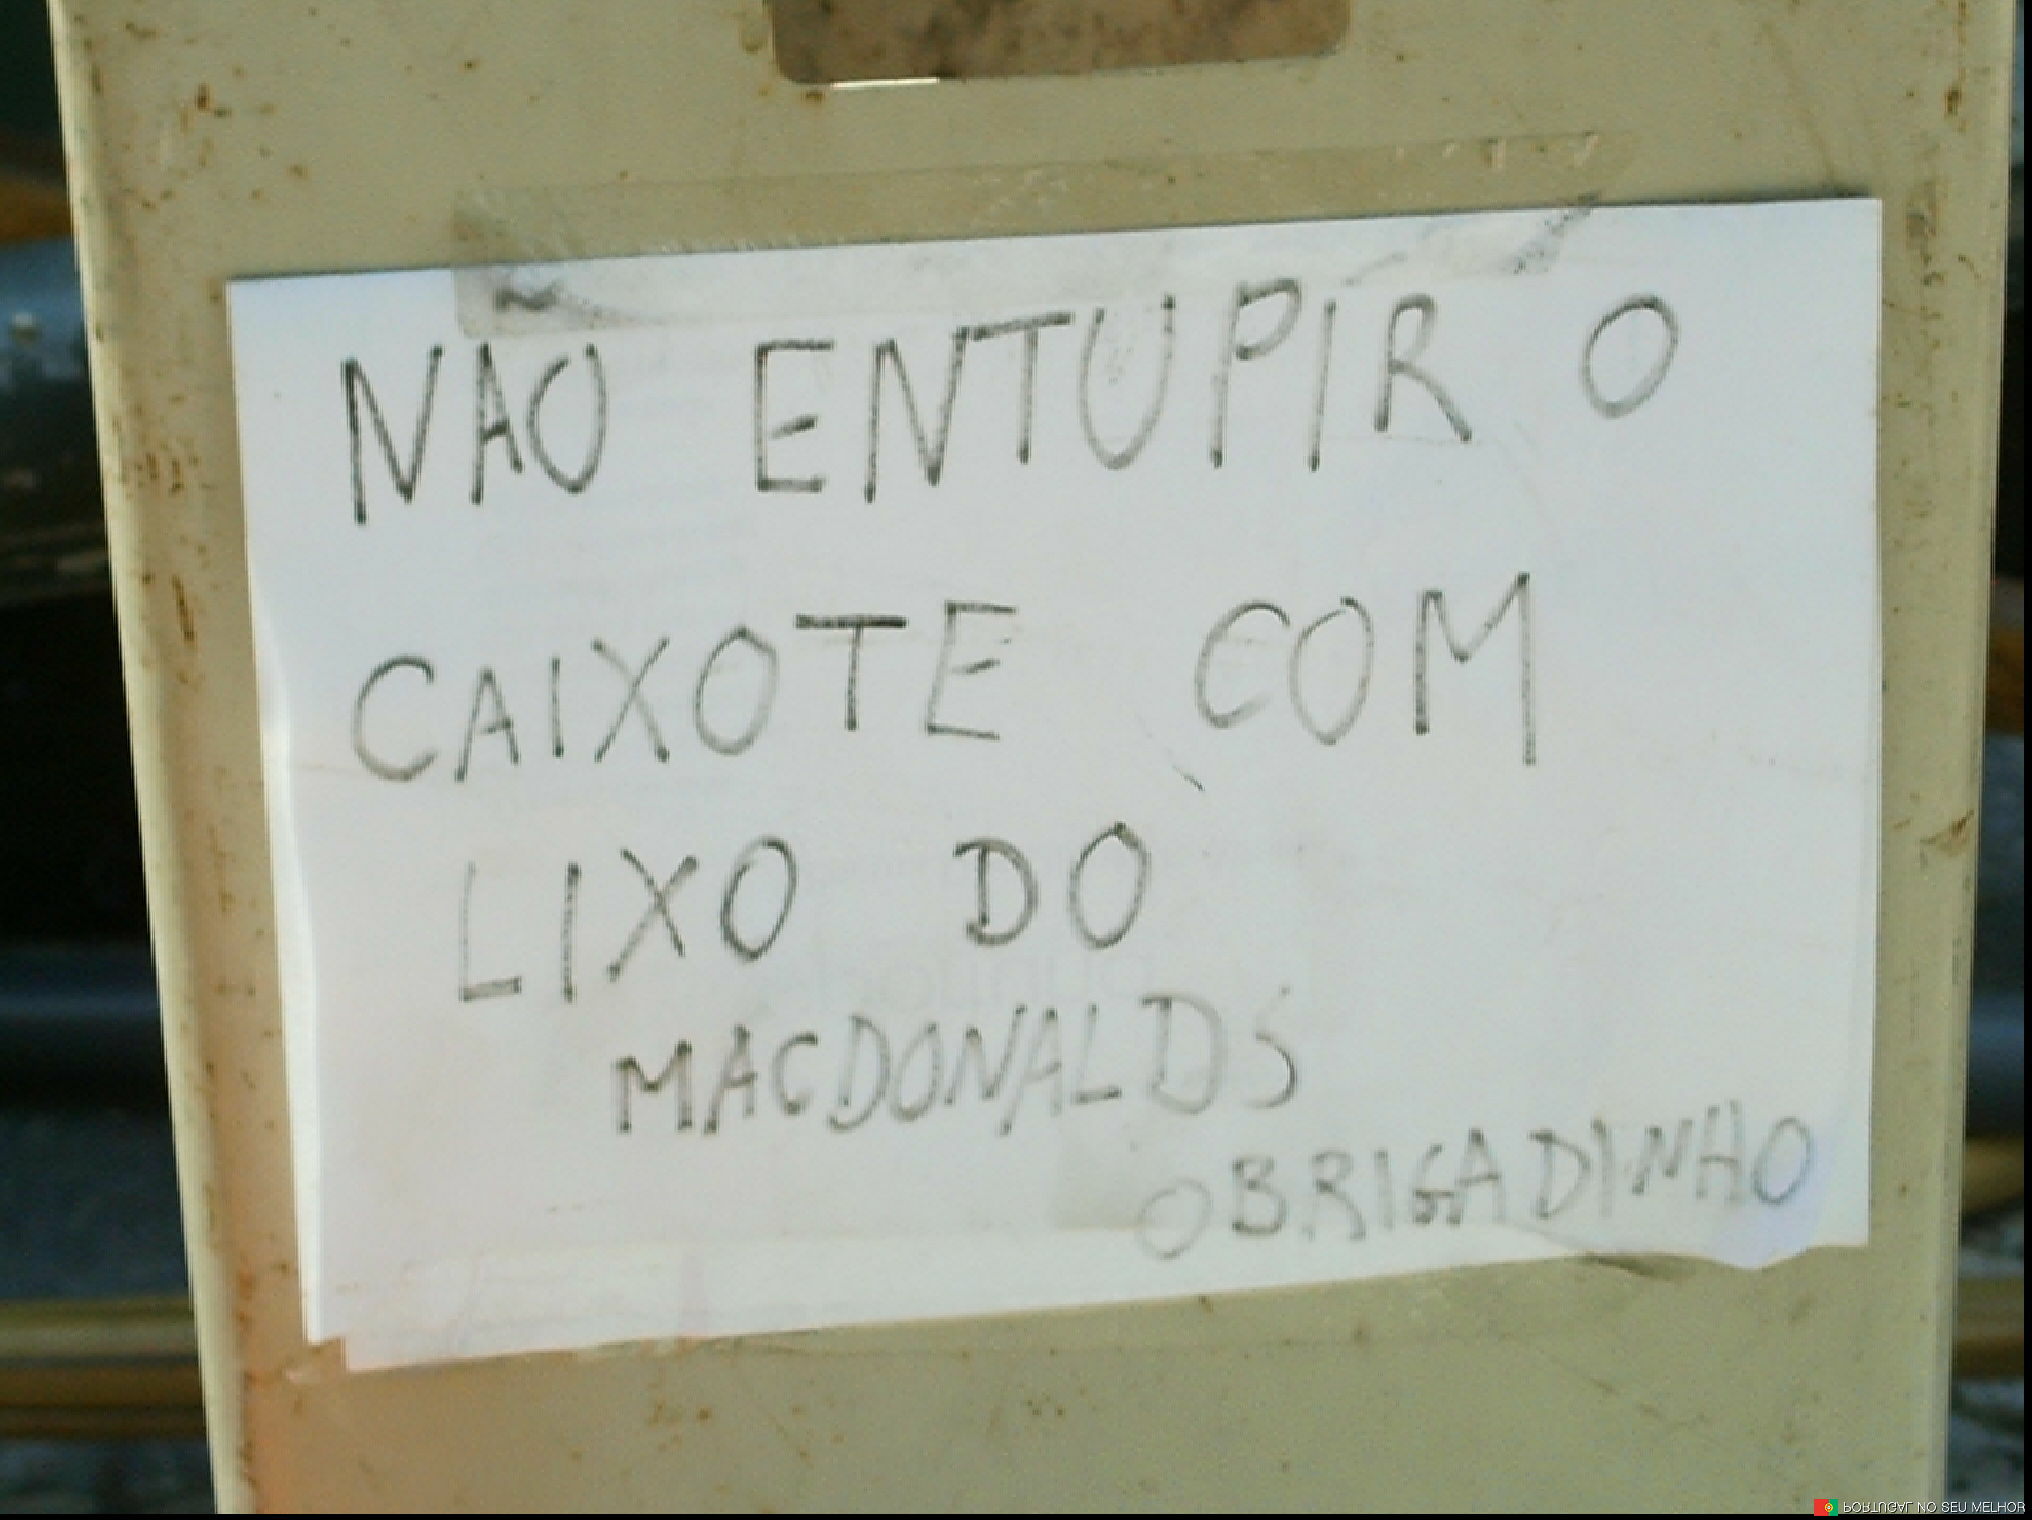 NAO ENTUPIR O
CAIXOTE COM
LIXO DO
MACDONALDS
OBRIGADINHO
PORTUGAL NO SEU MELHOR